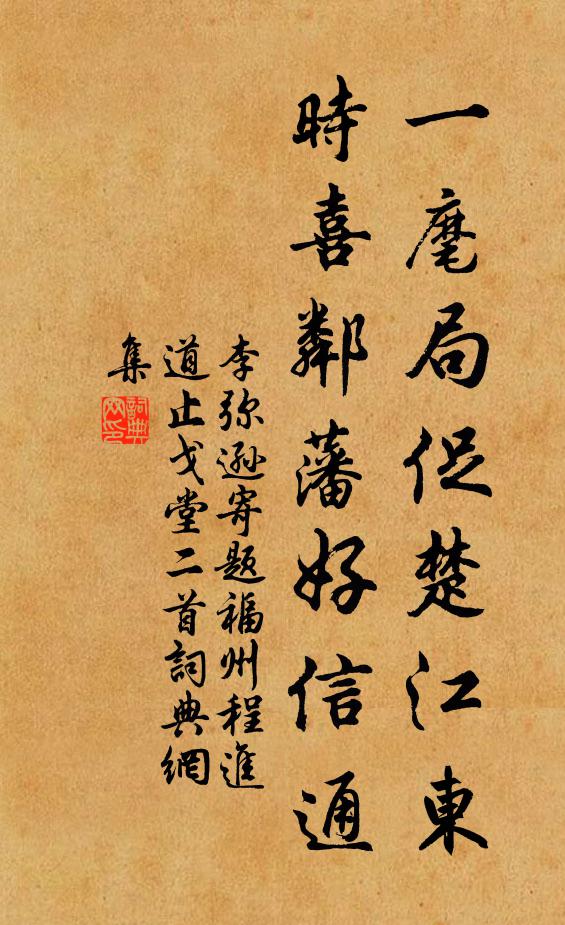 一麾局促楚江東
時喜鄰藩好信通
李弥遜寄题福州程進
道止戈堂二首詞典網
集
詞典網印